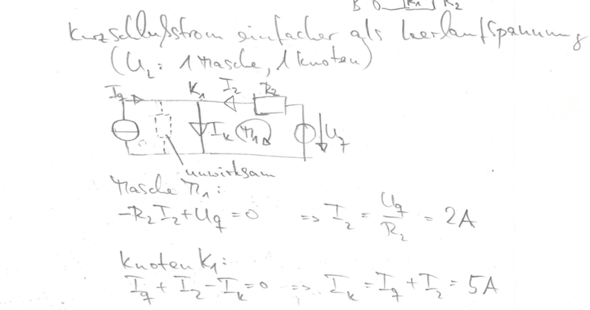 B R1 R2
Kurzschlußstrom einfacher als Leerlaufspannung
(U2: 1 Masche, 1 Knoten)
Iq K1 I2 R2
Ik M1 Uq
unwirksam
Masche M1:
-R2 I2 + Uq = 0 => I2 = Uq / R2 = 2A
Knoten K1:
Iq + I2 - Ik = 0 => Ik = Iq + I2 = 5A